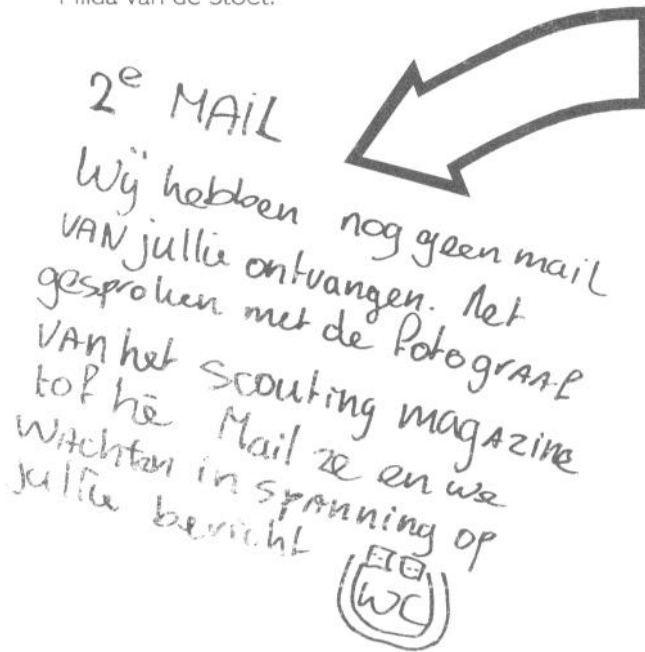 Hilda van de Stoet.
2e MAiL
Wij hebben nog geen mail
VAN jullie ontvangen. Net
gesproken met de fotogrAAf
VAN het scouting magazine
tof hè Mail ze en we
wAchten in spAnning op
jullie bericht
WC